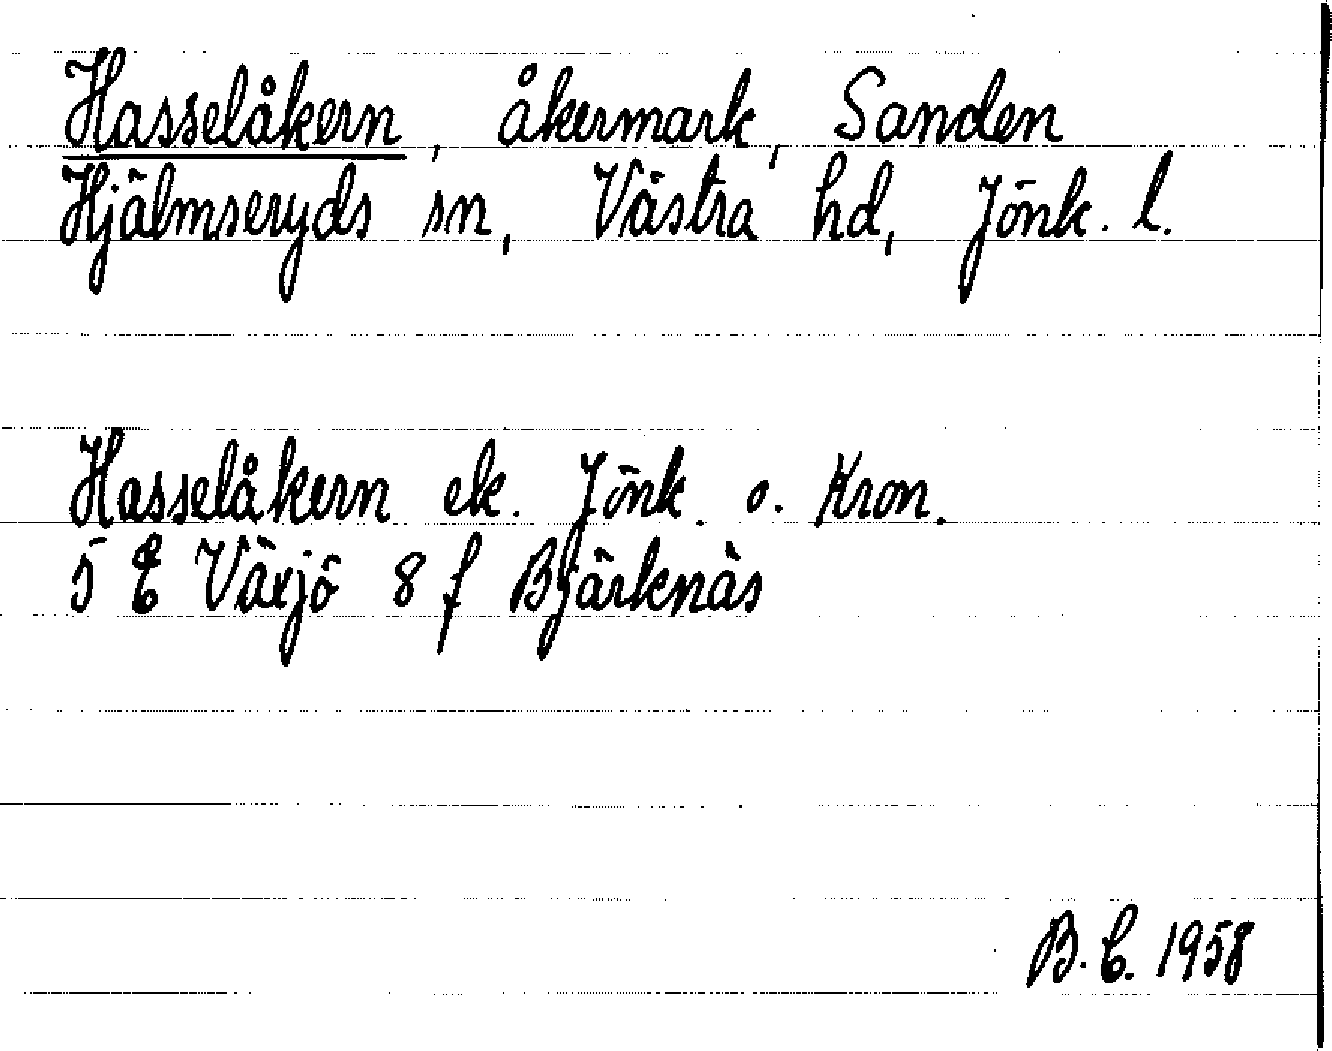 Hasselåkern, åkermark, Sanden
Hjälmseryds sn, Västra hd, Jönk. l.
Hasselåkern ek. Jönk. o. Kron.
5 E Växjö 8 f Bjärknäs
B. C. 1958